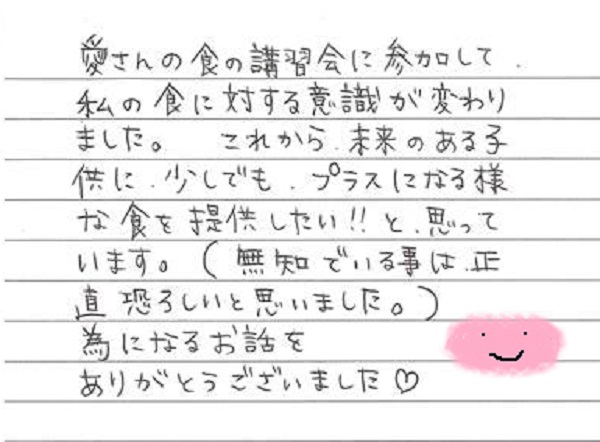 愛さんの食の講習会に参加して、
私の食に対する意識が変わり
ました。 これから、未来のある子
供に、少しでも、プラスになる様
な食を提供したい!!と、思って
います。(無知でいる事は、正
直恐ろしいと思いました。)
為になるお話を
ありがとうございました♡